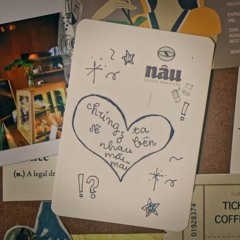 nâu
chúng ta
sẽ bên
nhau
mãi
mãi
!?
!?
(n.) A legal dr
TICK
COFFE
01928374